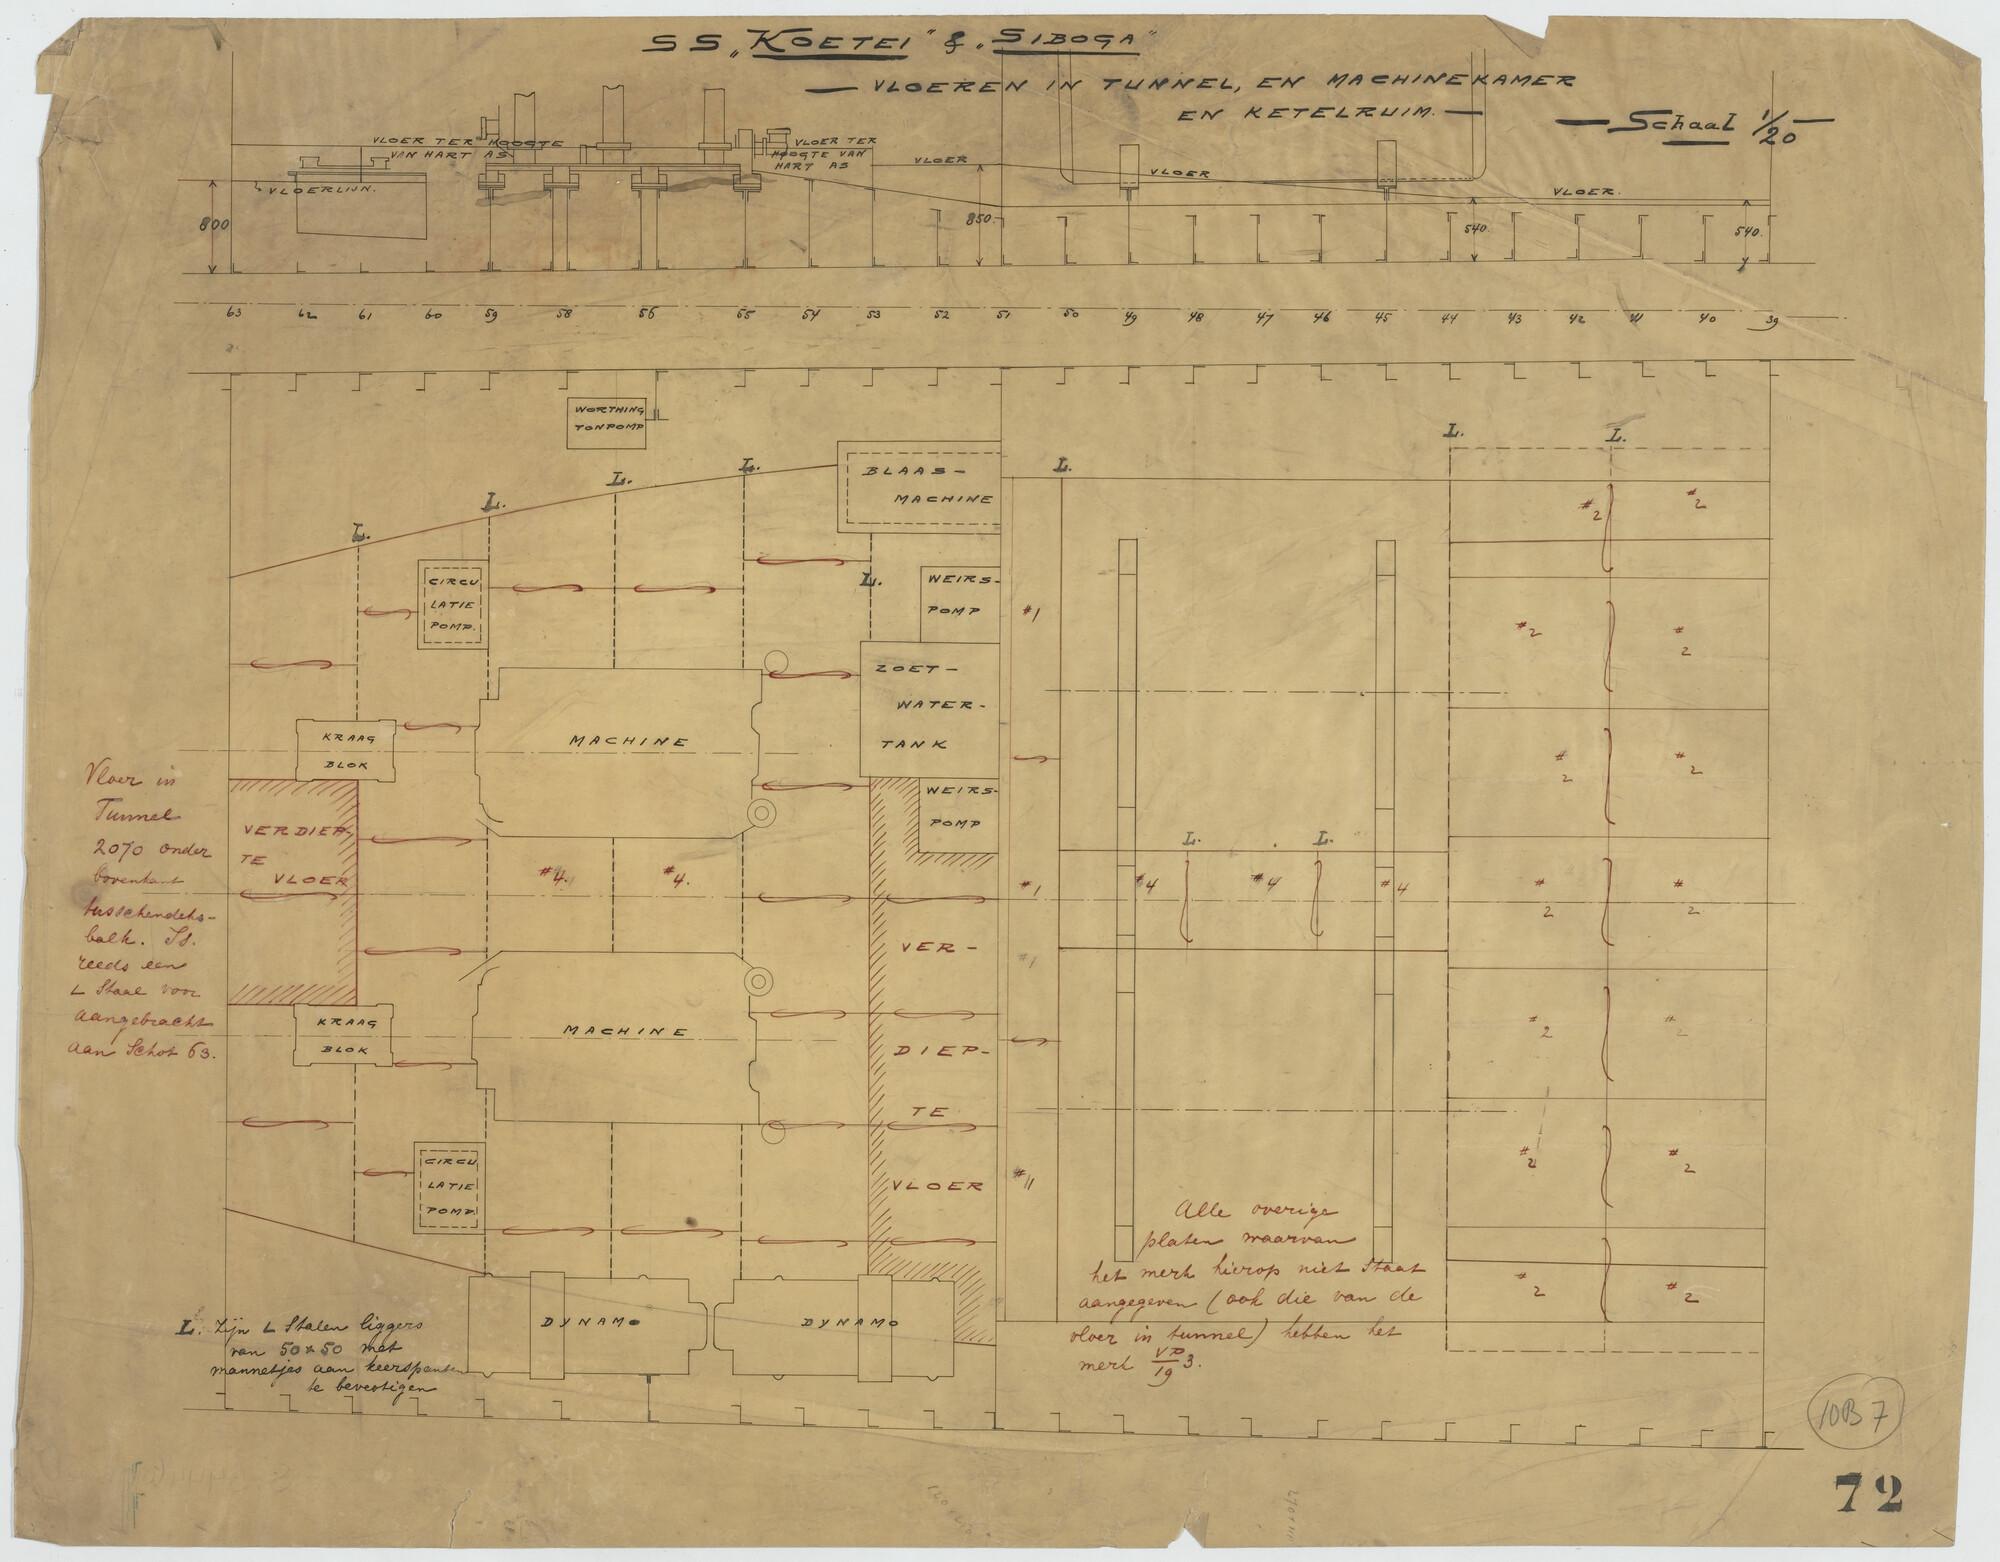 SS „KOETEI" & „SIBOGA"
— VLOEREN IN TUNNEL, EN MACHINEKAMER
EN KETELRUIM. —
— Schaal 1/20 —
VLOER TER HOOGTE
VAN HART AS
VLOERLIJN.
VLOER TER
HOOGTE VAN
HART AS
VLOER
VLOER
VLOER.
800
850.
540.
540.
63 62 61 60 59 58 56 55 54 53 52 51 50 49 48 47 46 45 44 43 42 41 40 39
WORTHING
TONPOMP
L. L. L. L. L. L. L.
BLAAS-
MACHINE
L.
CIRCU
LATIE
POMP.
WEIRS-
POMP
ZOET-
WATER-
TANK
WEIRS-
POMP
KRAAG
BLOK
MACHINE
VERDIEP-
TE
VLOER
#4. #4.
KRAAG
BLOK
MACHINE
CIRCU
LATIE
POMP.
DYNAMO
DYNAMO
VER-
DIEP-
TE
VLOER
#1
#1
#1
#11
L. L.
#4 #4 #4
#2 #2
#2 #2
#2 #2
#2 #2
#2 #2
#2 #2
#2 #2
Vloer in
Tunnel
2070 onder
bovenkant
tusschendeks-
balk. Is.
reeds een
L Staal voor
aangebracht
aan Schot 63.
L. Zijn L Stalen liggers
van 50×50 met
mannetjes aan keerspanten
te bevestigen
Alle overige
platen waarvan
het merk hierop niet Staat
aangegeven (ook die van de
vloer in tunnel) hebben het
merk VP/19 3.
10B7
72